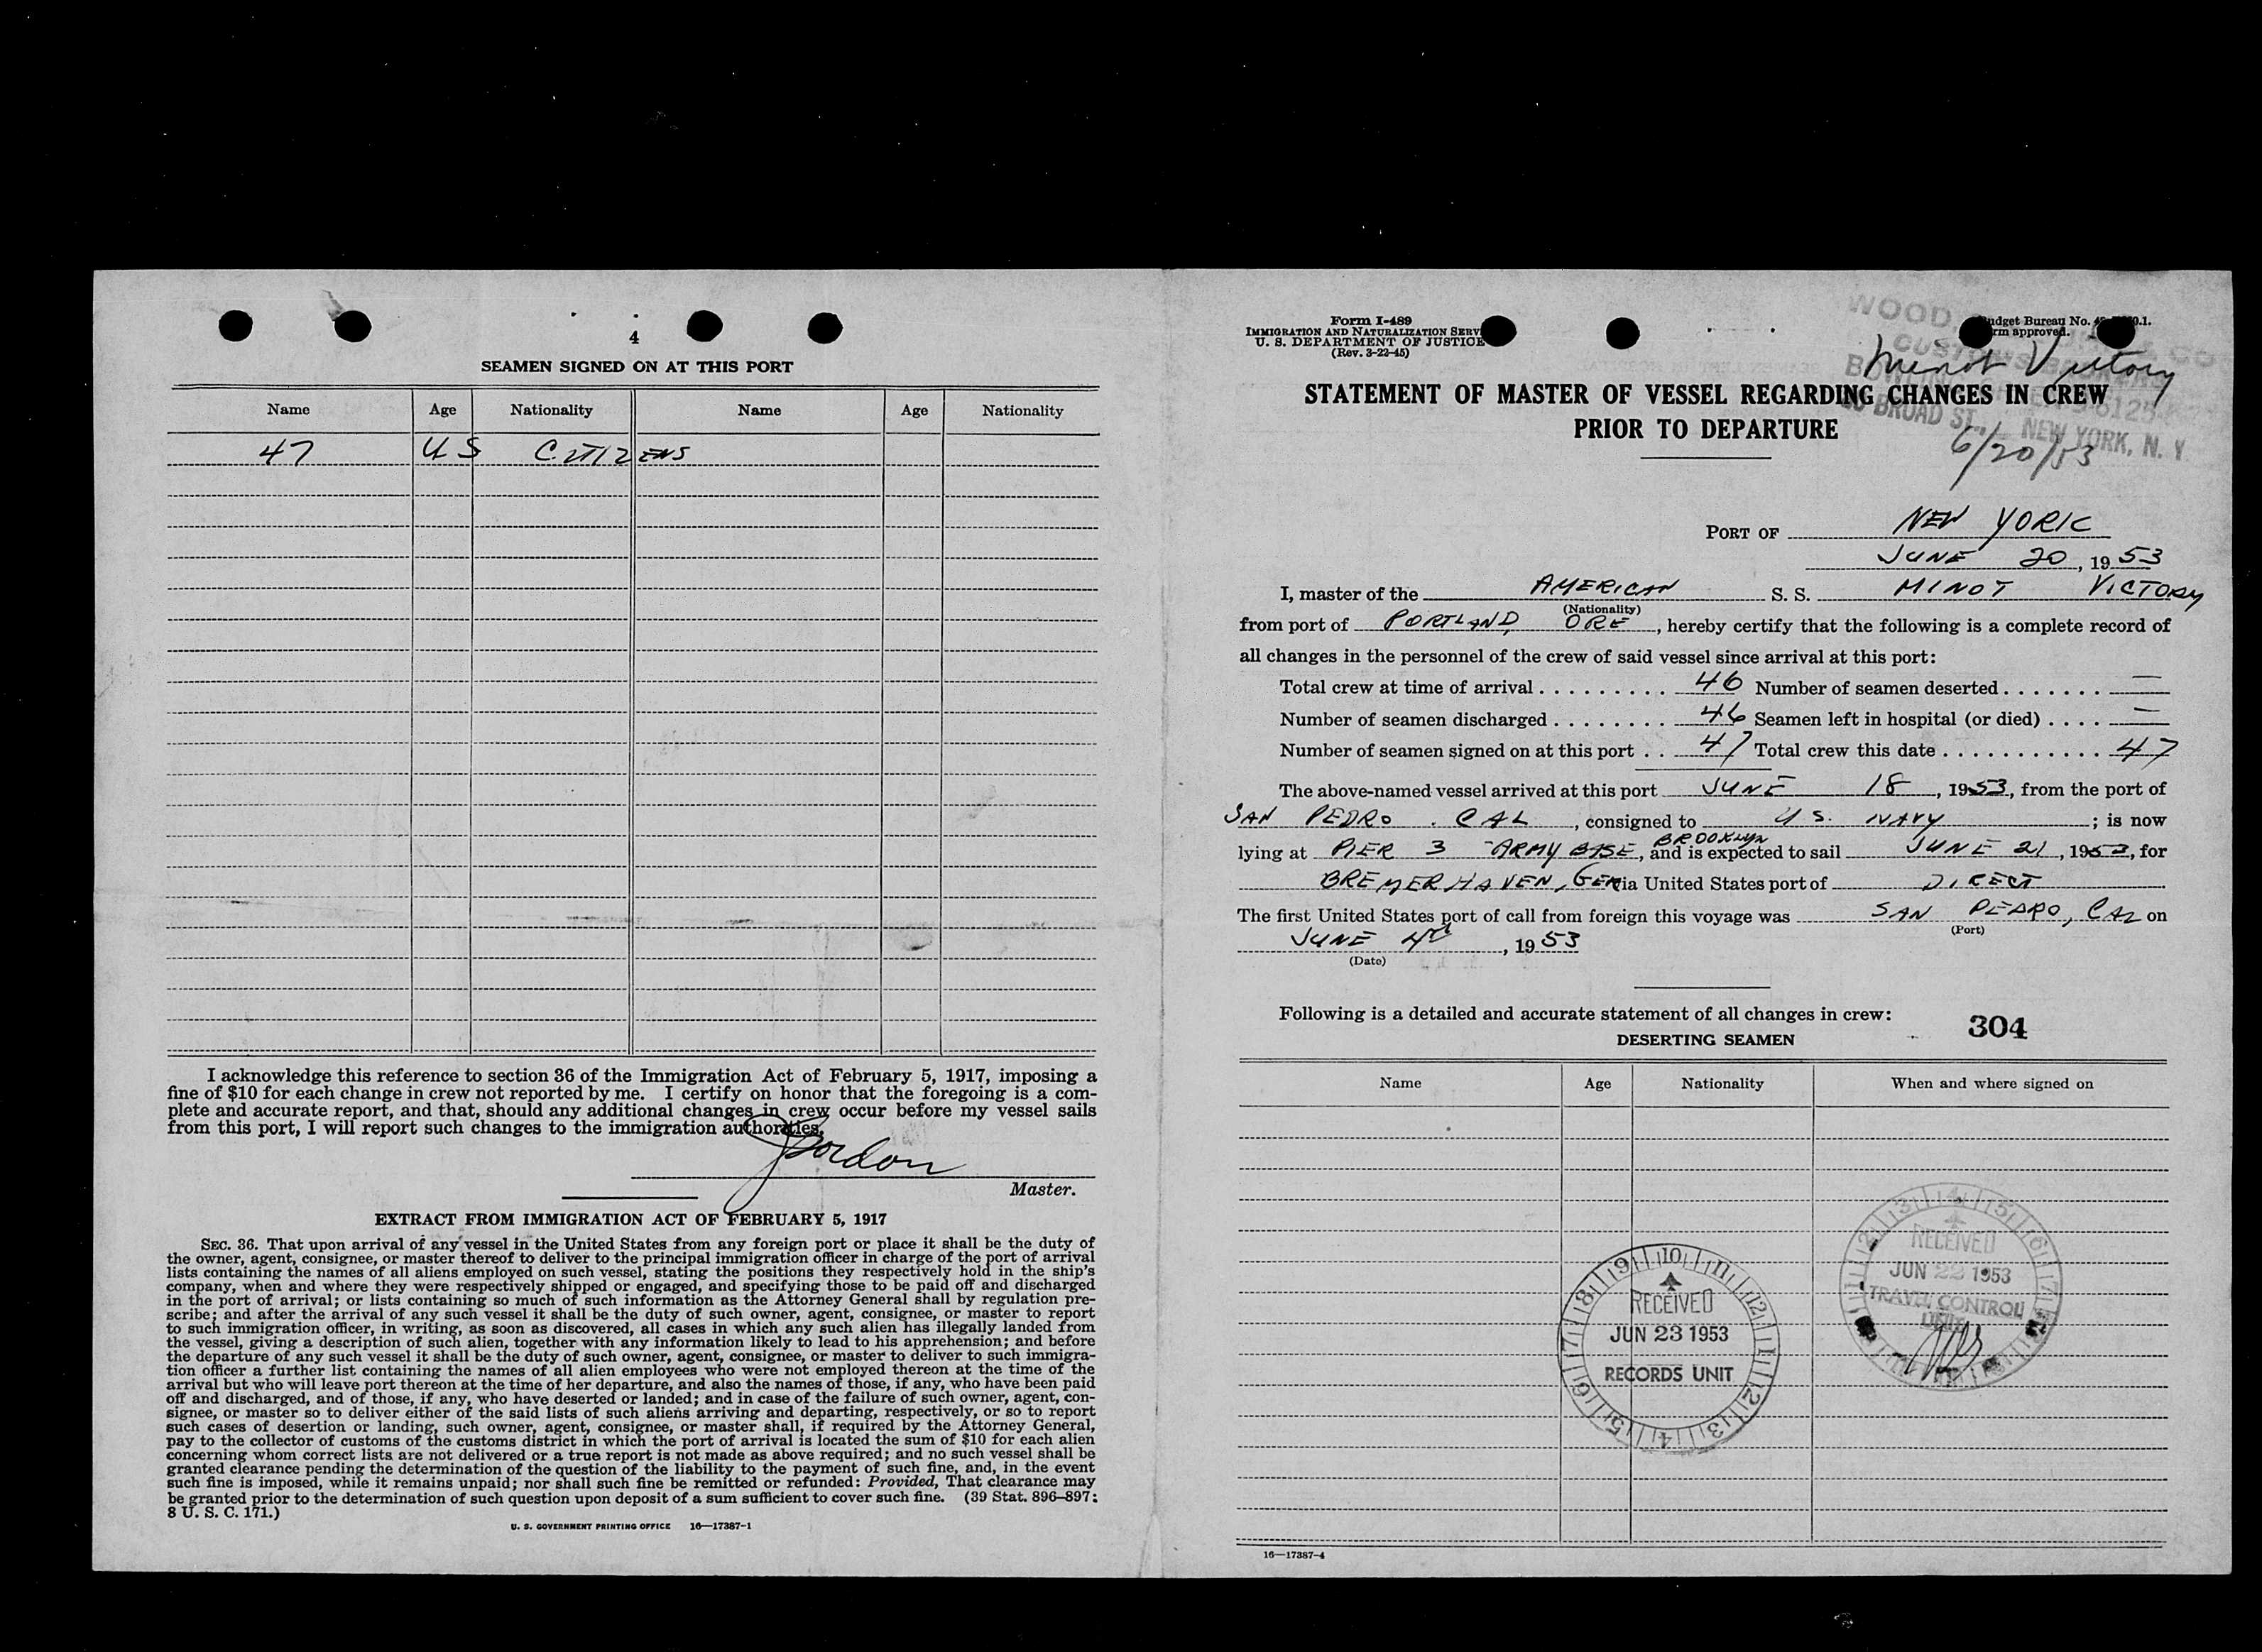 4
SEAMEN SIGNED ON AT THIS PORT
Name Age Nationality Name Age Nationality
47 US CITIZENS
I acknowledge this reference to section 36 of the Immigration Act of February 5, 1917, imposing a
fine of $10 for each change in crew not reported by me. I certify on honor that the foregoing is a com-
plete and accurate report, and that, should any additional changes in crew occur before my vessel sails
from this port, I will report such changes to the immigration authorities.
JGordon
Master.
EXTRACT FROM IMMIGRATION ACT OF FEBRUARY 5, 1917
SEC. 36. That upon arrival of any vessel in the United States from any foreign port or place it shall be the duty of
the owner, agent, consignee, or master thereof to deliver to the principal immigration officer in charge of the port of arrival
lists containing the names of all aliens employed on such vessel, stating the positions they respectively hold in the ship's
company, when and where they were respectively shipped or engaged, and specifying those to be paid off and discharged
in the port of arrival; or lists containing so much of such information as the Attorney General shall by regulation pre-
scribe; and after the arrival of any such vessel it shall be the duty of such owner, agent, consignee, or master to report
to such immigration officer, in writing, as soon as discovered, all cases in which any such alien has illegally landed from
the vessel, giving a description of such alien, together with any information likely to lead to his apprehension; and before
the departure of any such vessel it shall be the duty of such owner, agent, consignee, or master to deliver to such immigra-
tion officer a further list containing the names of all alien employees who were not employed thereon at the time of the
arrival but who will leave port thereon at the time of her departure, and also the names of those, if any, who have been paid
off and discharged, and of those, if any, who have deserted or landed; and in case of the failure of such owner, agent, con-
signee, or master so to deliver either of the said lists of such aliens arriving and departing, respectively, or so to report
such cases of desertion or landing, such owner, agent, consignee, or master shall, if required by the Attorney General,
pay to the collector of customs of the customs district in which the port of arrival is located the sum of $10 for each alien
concerning whom correct lists are not delivered or a true report is not made as above required; and no such vessel shall be
granted clearance pending the determination of the question of the liability to the payment of such fine, and, in the event
such fine is imposed, while it remains unpaid; nor shall such fine be remitted or refunded: Provided, That clearance may
be granted prior to the determination of such question upon deposit of a sum sufficient to cover such fine. (39 Stat. 896–897;
8 U. S. C. 171.)
U. S. GOVERNMENT PRINTING OFFICE 16—17387-1
Form I-489
IMMIGRATION AND NATURALIZATION SERV
U. S. DEPARTMENT OF JUSTICE
(Rev. 3-22-45)
Budget Bureau No.
approved.
WOOD, CO
CUSTOMS BROKERS
BROAD ST., NEW YORK, N. Y.
Minot Victory
6/20/53
STATEMENT OF MASTER OF VESSEL REGARDING CHANGES IN CREW
PRIOR TO DEPARTURE
PORT OF NEW YORK
JUNE 20, 1953
I, master of the AMERICAN S. S. MINOT VICTORY
(Nationality)
from port of PORTLAND, ORE, hereby certify that the following is a complete record of
all changes in the personnel of the crew of said vessel since arrival at this port:
Total crew at time of arrival . . . . . . . . . 46 Number of seamen deserted . . . . . . . —
Number of seamen discharged . . . . . . . . 46 Seamen left in hospital (or died) . . . . —
Number of seamen signed on at this port . . 47 Total crew this date . . . . . . . . . . . 47
The above-named vessel arrived at this port JUNE 18, 1953, from the port of
SAN PEDRO. CAL, consigned to U S. NAVY; is now
BROOKLYN
lying at PIER 3 ARMY BASE, and is expected to sail JUNE 21, 1953, for
BREMERHAVEN, GER via United States port of DIRECT
The first United States port of call from foreign this voyage was SAN PEDRO, CAL on
(Port)
JUNE 4, 1953
(Date)
Following is a detailed and accurate statement of all changes in crew:
304
DESERTING SEAMEN
Name Age Nationality When and where signed on
RECEIVED
JUN 22 1953
TRAVEL CONTROL
UNIT
RECEIVED
JUN 23 1953
RECORDS UNIT
16—17387-4